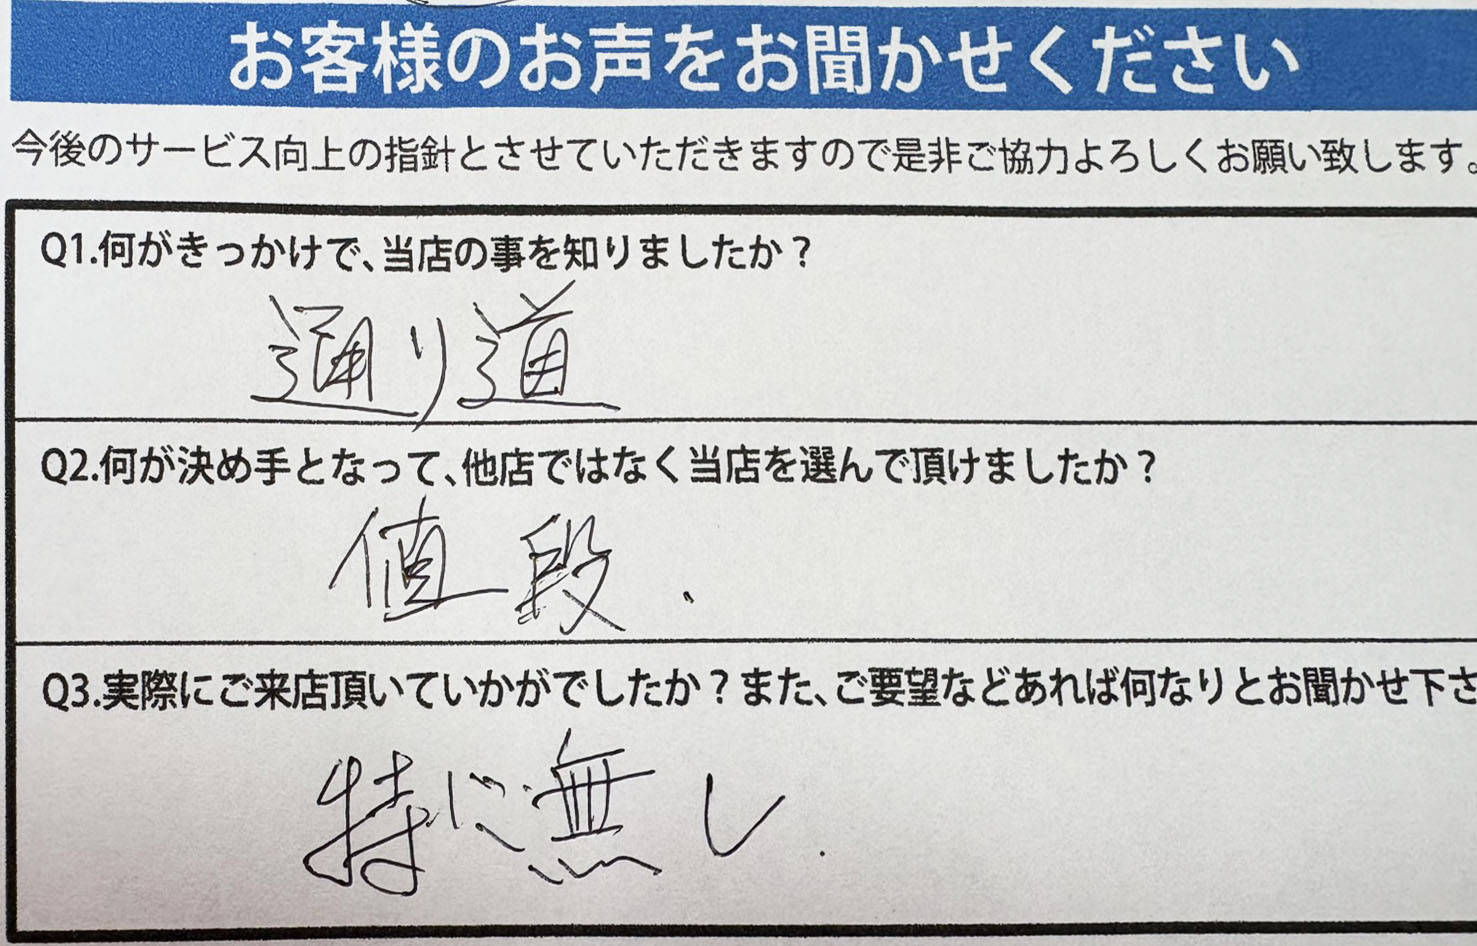 お客様のお声をお聞かせください
今後のサービス向上の指針とさせていただきますので是非ご協力よろしくお願い致します。
Q1.何がきっかけで、当店の事を知りましたか？
通り道
Q2.何が決め手となって、他店ではなく当店を選んで頂けましたか？
値段.
Q3.実際にご来店頂いていかがでしたか？また、ご要望などあれば何なりとお聞かせ下さ
特に無し.